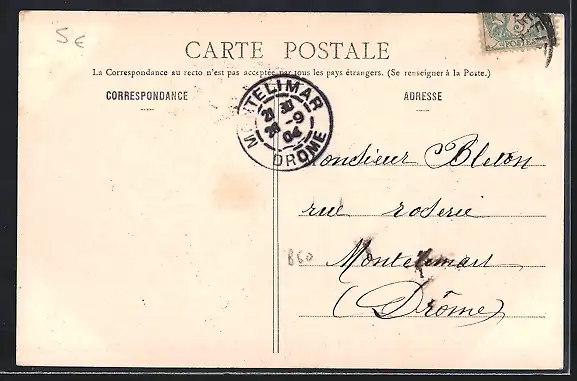 5€
CARTE POSTALE
La Correspondance au recto n'est pas acceptée par tous les pays étrangers. (Se renseigner à la Poste.)
CORRESPONDANCE
ADRESSE
MONTELIMAR
21 30
25 -9
04
DROME
Monsieur Bleton
rue roserie
B60
Montelimart
(Drôme)